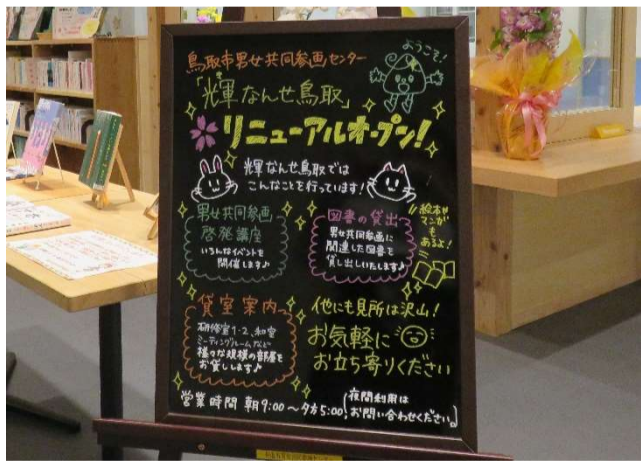 ようこそ!
鳥取市男女共同参画センター
「輝なんせ鳥取」
リニューアルオープン!
輝なんせ鳥取では
こんなことを行っています!
男女共同参画
啓発講座
いろんなイベントを
開催します♪
図書の貸出
男女共同参画に
関連した図書を
貸し出しいたします♪
絵本や
マンガ
も
あるよ!
貸室案内
研修室1・2、和室
ミーティングルームなど
様々な規模の部屋を
お貸しします♪
他にも見所は沢山!
お気軽に
お立ち寄りください
営業時間 朝9:00~夕方5:00
夜間利用は
お問い合わせください。